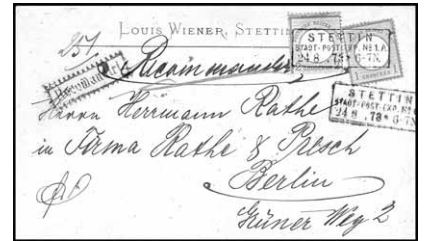 LOUIS WIENER, STETTIN
251
STETTIN
STADT-POST-EXP. № 1.A.
24 8 .73 * 6-7N.
1 GROSCHEN 1
Recommandirt
Recommandirt
STETTIN
STADT-POST-EXP. №
24 8 .73 * 6-7N
Herrn Herrmann Rathe
in Firma Rathé & Presch
Berlin
Grüner Weg 2